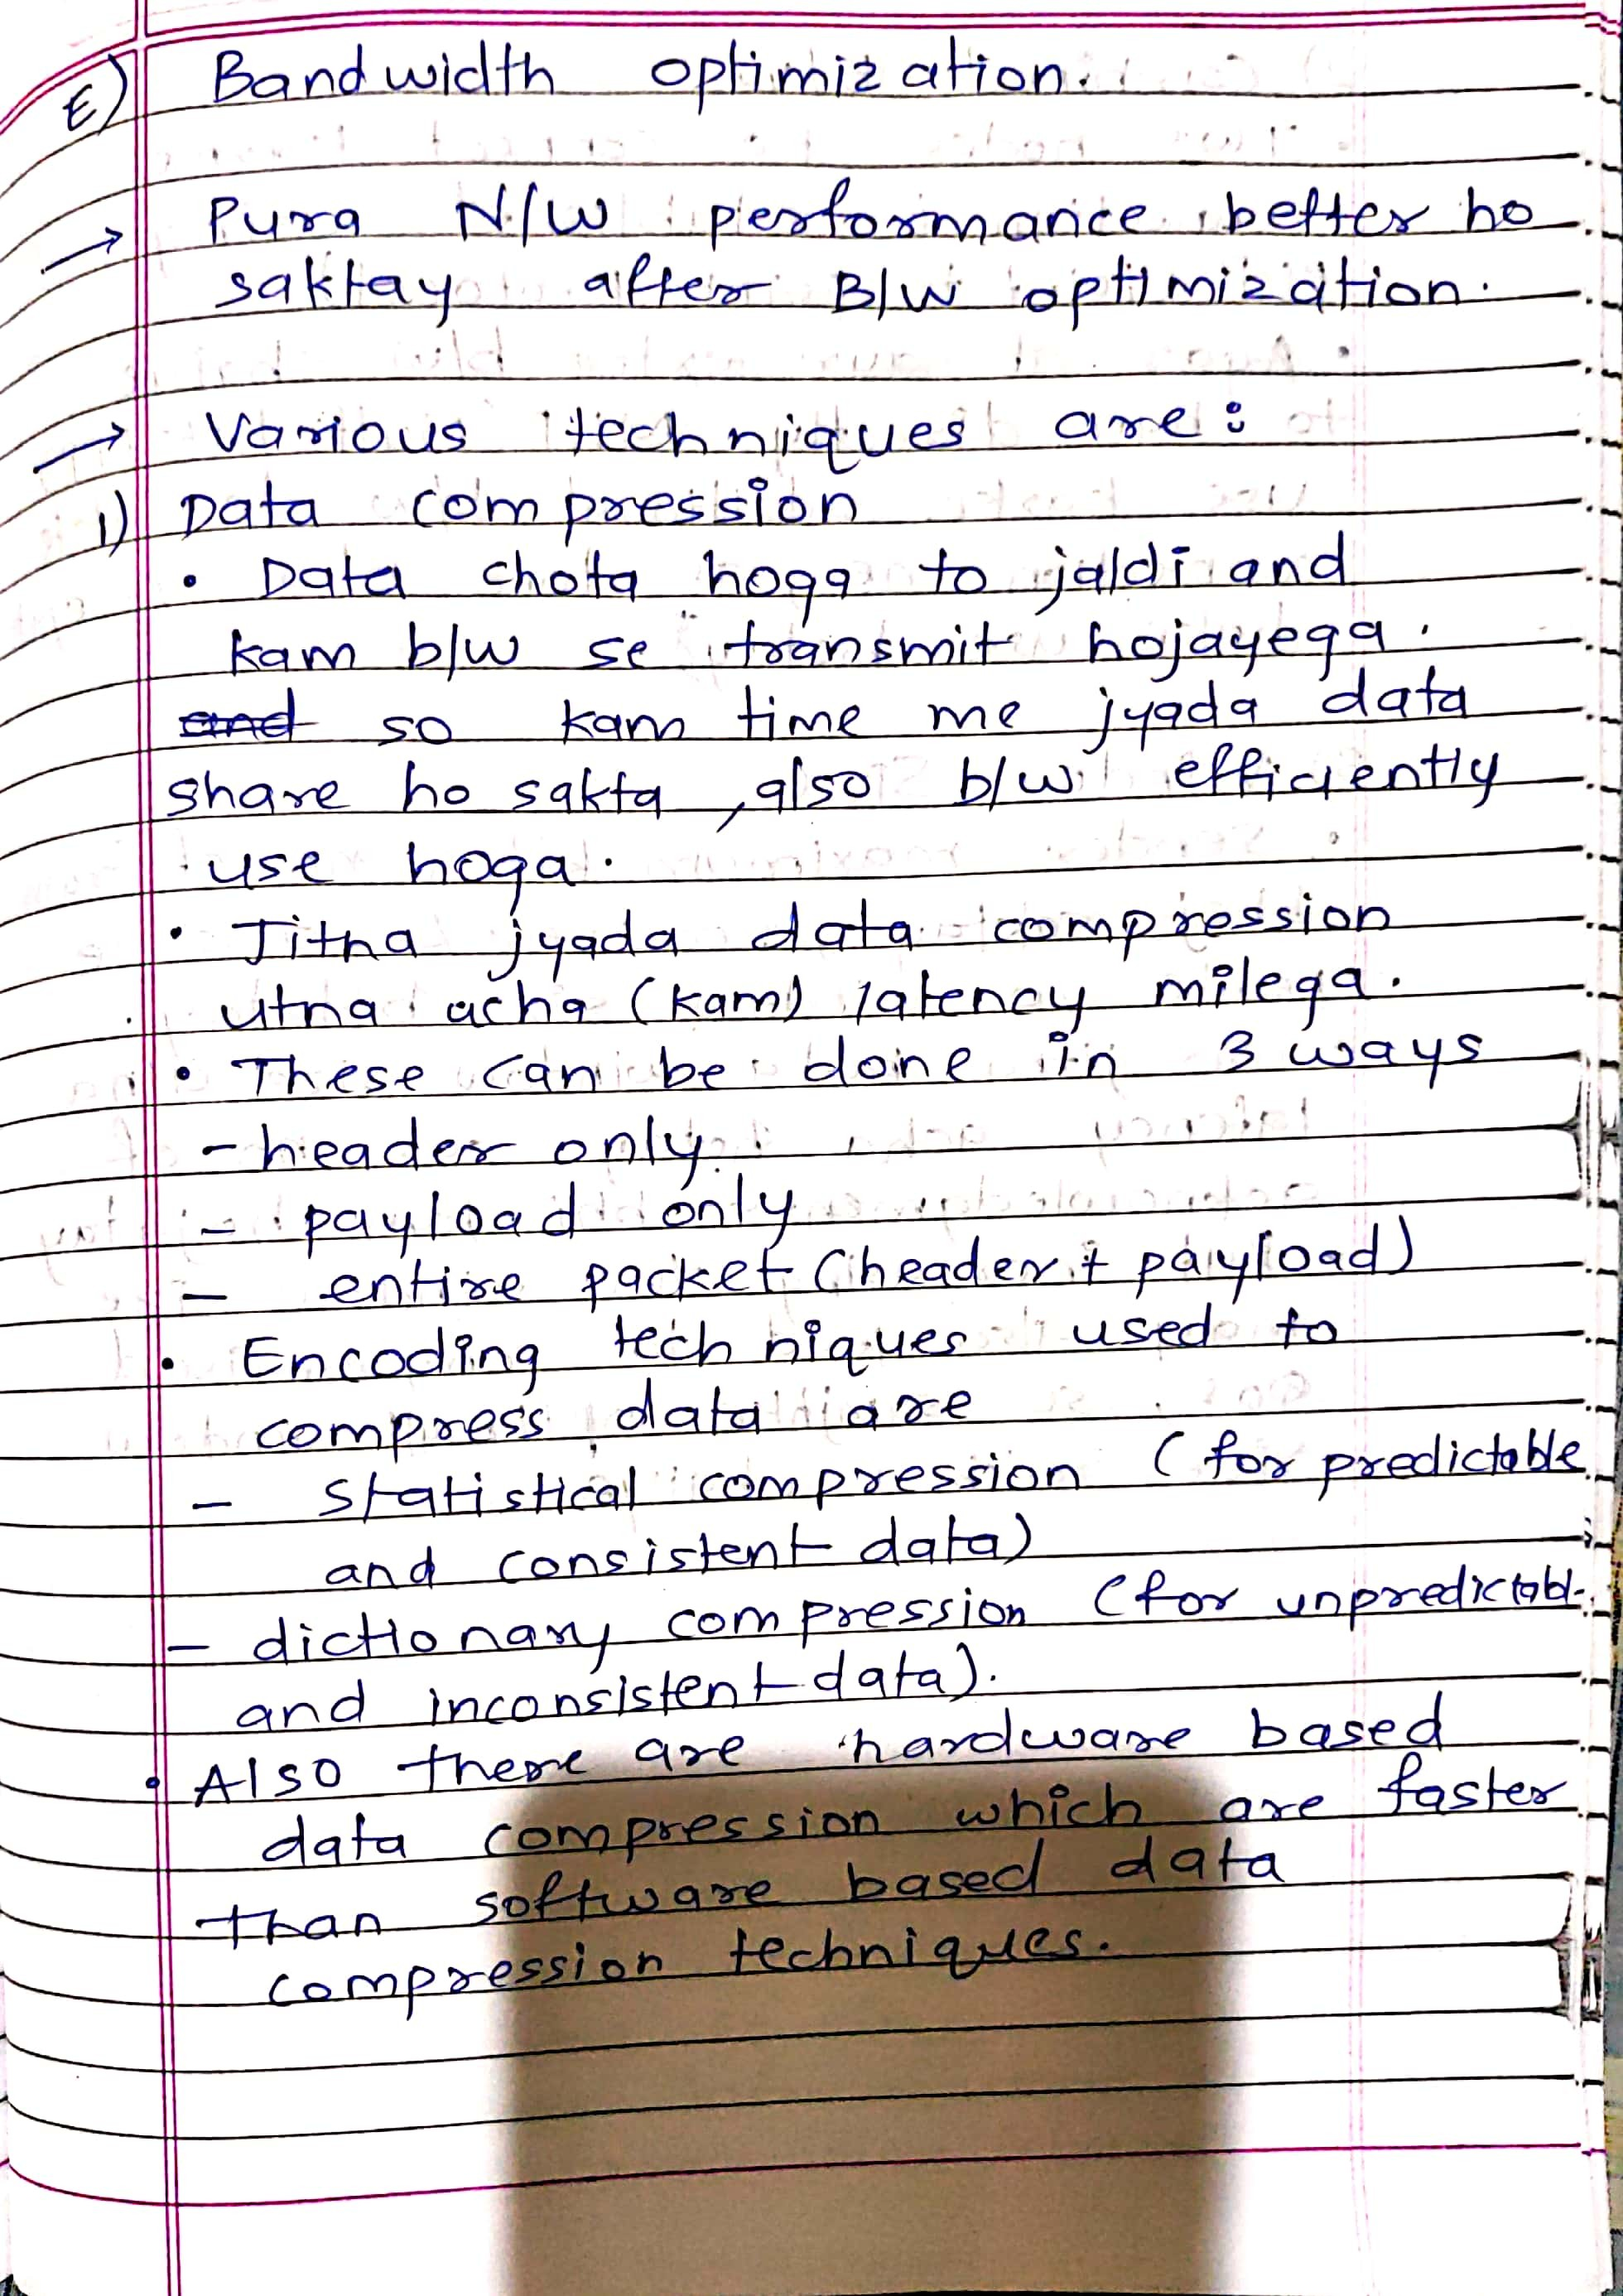 E) Bandwidth optimization.
→ Pura N/W performance better ho
saktay after B/W optimization.
→ Various techniques are :
1) Data compression
• Data chota hoga to jaldi and
kam b/w se transmit hojayega.
and so kam time me jyada data
share ho sakta, also b/w efficiently
use hoga.
• Jitna jyada data compression
utna acha (kam) latency milega.
• These can be done in 3 ways
- header only.
- payload only
- entire packet (header + payload)
• Encoding techniques used to
compress data are
- statistical compression (for predictable
and consistent data)
- dictionary compression (for unpredictabl.
and inconsistent data).
• Also there are hardware based
data compression which are faster
than software based data
compression techniques.